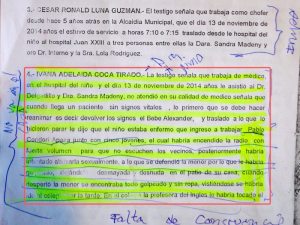 3.- CESAR RONALD LUNA GUZMAN.- El testigo señala que trabaja como chofer
desde hace 5 años atrás en la Alcaldía Municipal, que el día 13 de noviembre
de 2014 años el estuvo de servicio a horas 7:10 o 7:15 traslado desde le hospital del
niño al hospital Juan XXIII a tres personas entre ellas la Dara. Sandra Madeny y
oro Dr. Interno y la Sra. Lola Rodríguez.
4.- IVANA ADELAIDA COCA TIRADO.- La testigo señala que trabaja de medico
en el hospital del niño y el día 13 de noviembre de 2014 años le asistió al Dr.
Delgadillo y Dra. Sandra Madeny, no atendió en su calidad de medico señala que
cuando llega un paciente sin signos vitales , lo primero que se debe hacer
reanimar es decir devolver los signos el Bebe Alexander, y traslado a lo que lo
hicieron parar le dijo que el niño estaba enfermo que ingreso a trabajar, Pablo
junto con cinco jóvenes, el cual habría encendido la radio con
fuerte volumen para que no escuchen los vecinos, posteriormente habría
sexualmente, a lo que se defendió la menor por lo que le
desmayada desnuda en el patio de su casa, cuando
despertó la menor se encontraba todo golpeado y sin ropa, vistiéndose se habría
por la tarde. En el la profesora del ingles lo habría tocado el
Falta de